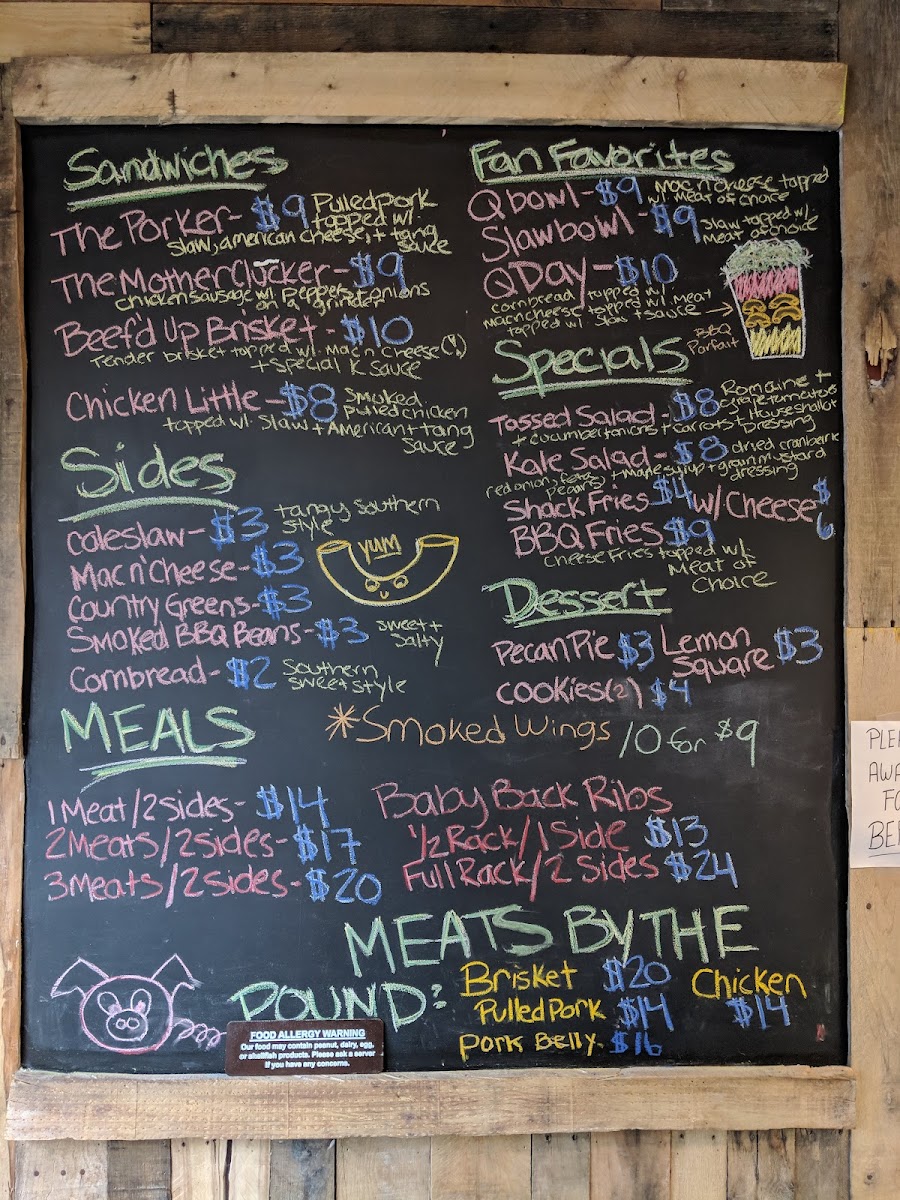 Sandwiches
The Porker- $9 Pulled pork
topped w/.
slaw, american cheese, + tang
sauce
The MotherClucker- $9
chicken sausage w/. peppers + onions
on
Beef'd Up Brisket- $10
Tender brisket topped w/. Mac n' Cheese (!)
+ Special K Sauce
Chicken Little- $8 Smoked
pulled chicken
topped w/. Slaw + American + tang
Sauce
Sides
coleslaw- $3 tangy Southern
style
Mac n' Cheese- $3
yum
Country Greens- $3
Smoked BBQ Beans- $3 sweet +
salty
Cornbread- $2 Southern
sweet style
Fan Favorites
Q bowl- $9 Mac n' cheese topped
w/. meat of choice
Slawbowl $9 slaw topped w/.
Meat of choice
QDay- $10
cornbread topped w/.
mac n cheese topped w/. meat
topped w/. slaw + sauce
BBQ
Parfait
Specials
Tossed Salad- $8 Romaine +
grape tomatoes
+ cucumber + onions + carrots + House shallot
Dressing
Kale Salad- $8 dried cranberry
red onion, feta, + maple syrup + grain mustard
pecans dressing
Shack Fries $4 w/ Cheese $6
BBQ Fries $9
cheese Fries topped w/.
Meat of
choice
Dessert
Pecan Pie $3 Lemon
Square $3
cookies (2) $4
MEALS
*Smoked Wings 10 for $9
1 Meat/2 sides- $14
2 Meats/2 sides- $17
3 Meats/2 sides- $20
Baby Back Ribs
1/2 Rack/1 Side $13
Full Rack/2 Sides $24
MEATS BY THE
POUND:
Brisket $20
Pulled Pork $14
Pork Belly- $16
Chicken
$14
FOOD ALLERGY WARNING
Our food may contain peanut, dairy, egg,
or shellfish products. Please ask a server
if you have any concerns.